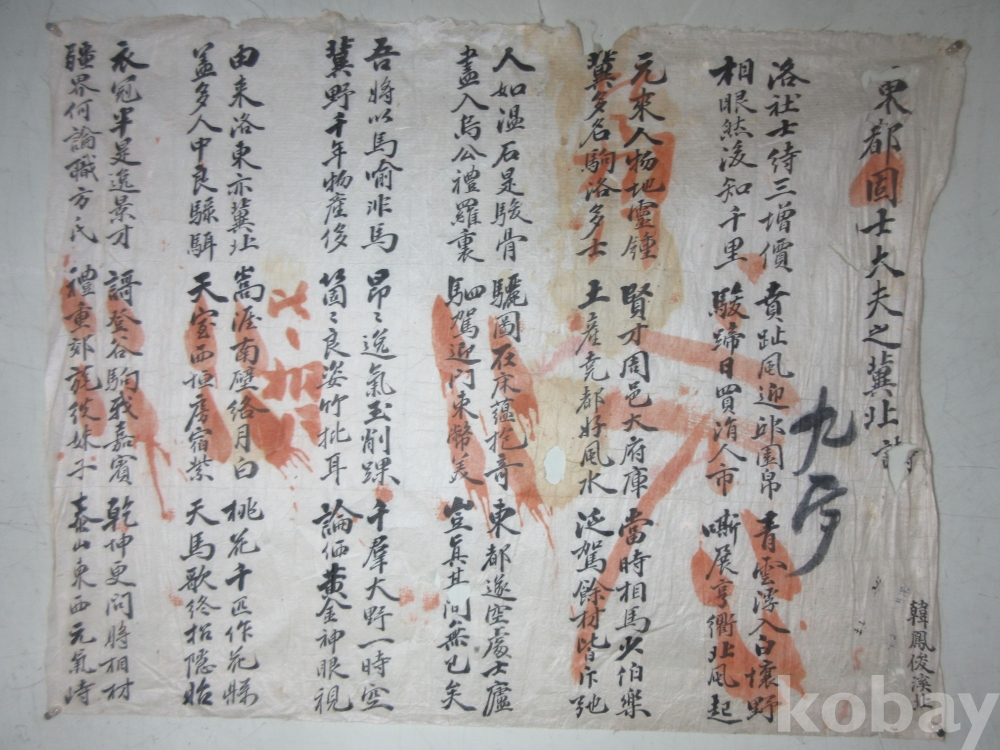 東都固士大夫之冀北
九
韓鳳俊溪北
洛社士待三增價 賁趾風迎邱園帛 青雲薄入白壤野
相眼然後知千里 駿蹄日買涓人市 嘶展亨衢北風起
元來人物地靈鍾 賢才周邑大府庫 當時相馬少伯樂
冀多名駒洛多士 土產竟都好風水 泛駕餘材皆斥弛
人如溫石是駿骨 驪圖在床蘊抱奇 東都遂空處士廬
盡入烏公禮羅裏 駟駕迎門束幣美 豈眞其間無已矣
吾將以馬喻非馬 昂〻逸氣玉削踝 千羣大野一時空
冀野千年物產侈 箇〻良姿竹批耳 論価黃金神眼視
由来洛東亦冀北 嵩涯南壁絡月白 桃花千匹作花縣
盖多人中良騄駬 天室西恒房宿紫 天馬歌終招隱貽
衣冠半是逸景才 謌登谷駒我嘉賓 乾坤更問將相材
疆界何論職方氏 禮重郊旄繞姝子 泰山東西元氣峙
kobay